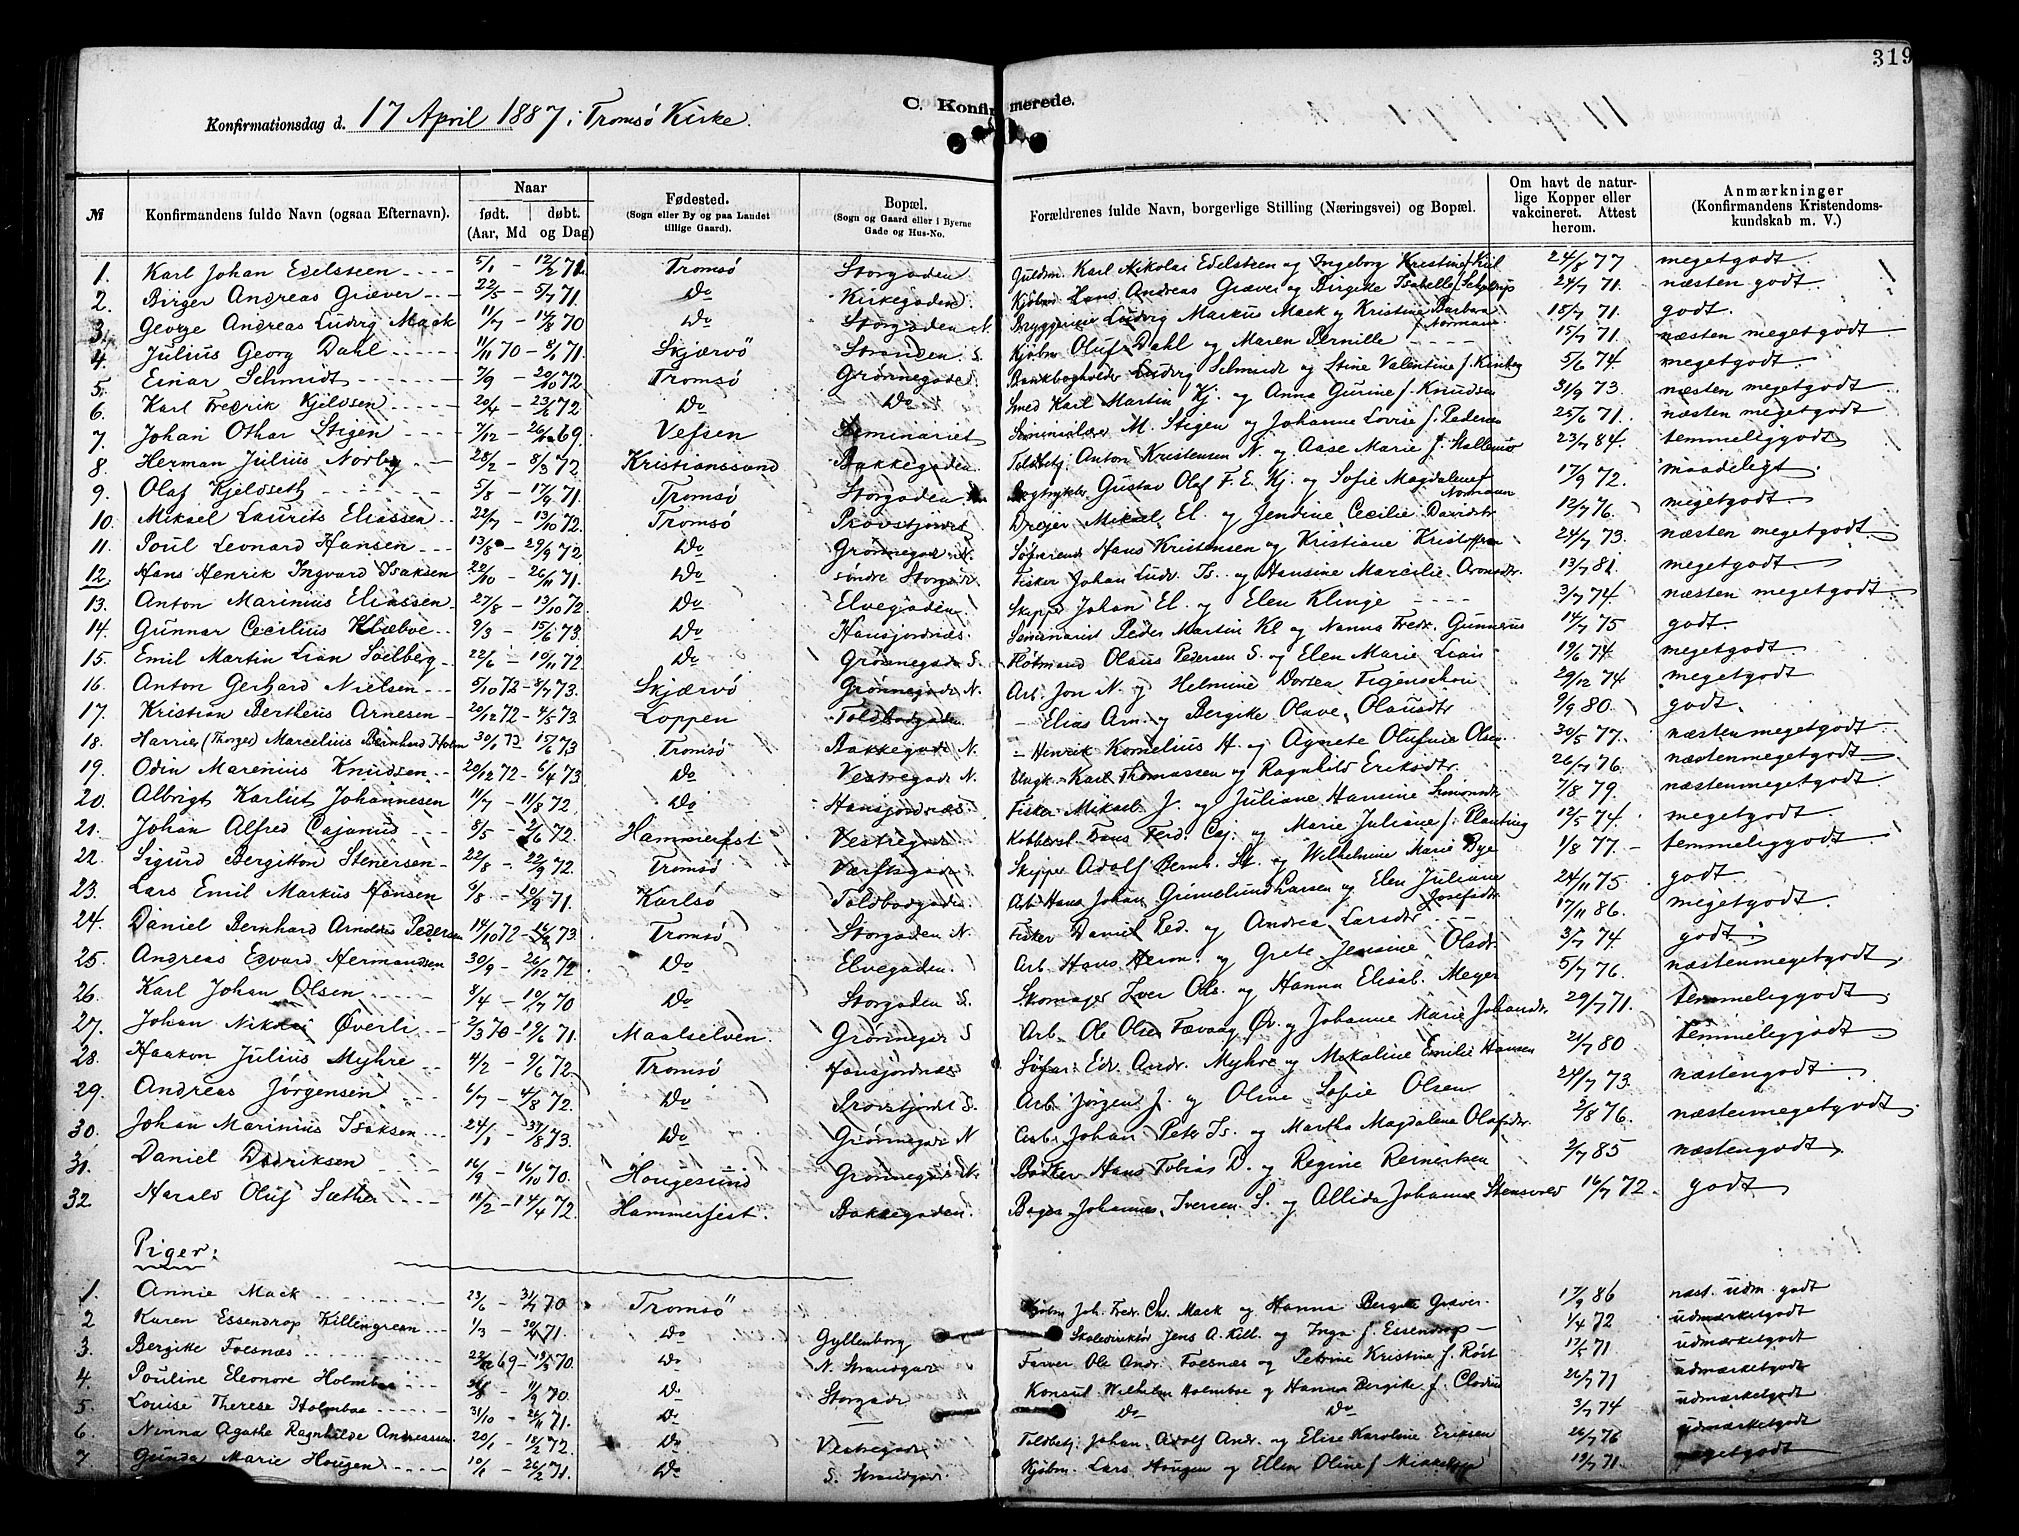 319
C. Konfirmerede.
Konfirmationsdag d. 17 April 1887 i Tromsø Kirke.
№ | Konfirmandens fulde Navn (ogsaa Efternavn). | Naar født. døbt. (Aar, Md og Dag) | Fødested. (Sogn eller By og paa Landet tillige Gaard). | Bopæl. (Sogn og Gaard eller i Byerne Gade og Hus-No. | Forældrenes fulde Navn, borgerlige Stilling (Næringsvei) og Bopæl. | Om havt de naturlige Kopper eller vakcineret. Attest herom. | Anmærkninger (Konfirmandens Kristendomskundskab m. V.)
1. Karl Johan Edelsteen 5/1 - 12/2 71. Tromsø Storgaden Guldsm. Karl Nikolai Edelsteen og Ingeborg Kristine f. Kiil 24/8 77 megetgodt.
2. Birger Andreas Græver 22/5 - 5/7 71. Do Kirkegaden Kjøbm Hans Andreas Græver og Bergike Isabelle f. 24/7 71. næsten godt.
3. George Andreas Ludvig Mack 11/7 - 14/8 70 Do Storgaden N. Bryggerieier Ludvig Markus Mack og Kristine Barbara f. Normann 15/7 71. godt.
4. Julius Georg Dahl 11/11 70 - 8/1 71. Skjærvö Stranden S. Kjøbm Oluf Dahl og Maren Pernille 15/7 71. næsten megetgodt.
5. Einar Schmidt 7/9 - 20/10 72. Tromsø Grønnegade S. Bankbogholder Ludvig Schmidt og Stine Valentine f. 5/6 74. megetgodt.
6. Karl Fredrik Kjeldsen 20/4 - 23/6 72 Do Do Smed Karl Martin Kj. og Anna Gurine f. Knudsen 31/9 73. næsten megetgodt
7. Johan Othar Stigen 7/12 - 69 Vefsen Seminariet M. Stigen og Johanne Lovise f. Pedersen 25/6 71. næsten megetgodt
8. Herman Julius Norby 28/2 - 8/3 72 Kristianssund Bakkegaden Toldbetj. Anton Kristensen N. og Aase Marie f. 23/7 84. temmeliggodt.
9. Olaf Kjeldseth 5/8 - 17/9 71. Tromsø Storgaden Bogtrykker Gustav Olaf F. E. Kj. og Sofie Magdalene f. Normann 17/9 72. maadeligt.
10. Mikael Laurits Eliassen 22/7 - 13/10 72. Tromsø Provstjordet Dreier Mikael El. og Jendine Cecilie Davidsdr 12/7 76. megetgodt.
11. Poul Leonard Hansen 13/8 - 29/9 72. Do Grønnegad. N. Søfarende Hans Kristensen og Kristiane 24/7 73. næsten megetgodt
12. Hans Henrik Ingvard Isaksen 22/10 - 26/11 71. Do søndre Storgade Fisker Johan Ludv. Is. og Hansine Marcelie Aronsdr. 13/7 81. megetgodt.
13. Anton Marinius Eliassen 27/8 - 13/10 72. Do Elvegaden Skipper Johan El. og Elen Klinge 3/7 74. næsten megetgodt.
14. Gunnar Cecilius Klæboe 9/3 - 15/6 73. Do Hansjordnæs. Peder Martin Kl og Nanna Fredr. Gunnerus 14/7 75 godt.
15. Emil Martin Lian Solberg 22/6 - 10/11 72. Do Grønnegade S. Flötmand Olaus Pedersen S. og Elen Marie Lian 19/6 74. megetgodt.
16. Anton Gerhard Nielsen 5/10 72 - 8/7 73. Skjærvö Grønnegade N. Arb. Jon N. og Helmine Dorea Figenschou 29/12 74. megetgodt
17. Kristian Bertheus Arnesen 20/12 72 - 4/5 73. Loppen Toldbodgaden - Elias Arn. og Bergike Olave Olausdtr 9/9 80. godt.
18. Harries (Thorges) Marcelius Bernhard Holm 30/1 73 - 15/6 73 Tromsø Bakkegade N. - Henrik Kornelius H. og Agnete Olufine Olsen 30/5 77. næsten megetgodt.
19. Odin Marenius Knudsen 20/12 72 - 6/4 73. Do Vestregade N. Ungk. Karl Thomassen og Ragnhild Eriksdtr. 26/7 76. næstenmegetgodt.
20. Albrigt Karlist Johannesen 11/7 - 11/8 72. Do Hansjordnæs. Fisker Mikael J. og Juliane Hansine Simonsdtr 7/8 79. næstenmegetgodt.
21. Johan Alfred Cajanus 8/5 - 2/6 72. Hammerfest Vestregad. Kobbersl. Frans Ferd. Caj. og Marie Juliane f. Planting 12/5 74. megetgodt.
22. Sigurd Bergitton Stenersen 22/8 - 22/9 72. Tromsø Værftsgad. Skipper Adolf Bernh. St. og Wilhelmine Marie Bye 1/8 77. temmeliggodt.
23. Lars Emil Markus Hansen 9/8 - 10/9 71. Karlsö Toldbodgaden. Arb. Hans Johan Grinnelund Larsen og Elen Juliane Josefsdtr 24/11 75. godt.
24. Daniel Bernhard Arnoldus Pedersen 14/10 72 - 73. Tromsø Storgaden N. Fisker Daniel Ped. og Andrea Larsdtr 17/11 86. megetgodt.
25. Andreas Edvard Hermandsen 30/9 - 26/12 72 Do Elvegaden. Arb. Hans Herm. og Grete Jensine Olsdr. 3/7 74 godt.
26. Karl Johan Olsen 8/4 - 10/7 70 Do Storgaden S. Skomager Iver Ols. og Hanna Elisab. Meyer 5/7 76. næstenmegetgodt.
27. Johan Nikolai Øverli 2/3 70 - 19/6 71. Maalselven. Grønnegad. S Arb. Ole Olsen Øv. og Johanne Marie Johandtr. 29/7 71. temmeliggodt.
28. Haakon Julius Myhre 4/2 - 9/6 72. Tromsø Hansjordnæs Søfar. Edv. Andr. Myhre og Makaline Emilie Hansen 21/7 80 temmeliggodt.
29. Andreas Jørgensen 6/7 - 4/8 72. Do Provstjordet S. Arb. Jørgen J. og Oline Sofie Olsen 24/7 73. næstengodt.
30. Johan Marinius Isaksen 24/1 - 31/8 73. Do Grønnegade N Arb. Johan Peter Is. og Martha Magdalene Olafsdtr. 2/8 76. næstenmegetgodt.
31. Daniel Didriksen 16/9 - 16/10 70. Hougesund Grønnegade N. Bødker Hans Tobias D. og Regine Reinertsen 2/7 85. næstengodt.
32. Harald Oluf Sæther 11/2 - 14/4 72. Hammerfest. Bakkegaden. Bager Johannes Iversen S. og Allida Johanne 16/7 72. godt
Piger:
1. Annie Mack 23/6 - 31/7 70 Tromsö Kjøbm Joh. Fredr. Chr. Mack og Hanna Bergite Græver. 17/9 86 næst. udm. godt
2 Karen Essendrop Killingreen 1/3 - 30/4 71. Do Gyllenborg Skoledirektör Jens A. Kill. og Inga f. Essendrop 1/4 72 udmærketgodt
3. Bergike Foesnæs 69 - 70. Do N. Strandgad. Farver Ole Andr. Foesnæs og Petrine Kristine f. Röst 17/5 71 udmærketgodt
4. Pouline Eleonore Holmboe 70. Do Storgade Konsul Wilhelm Holmboe og Hanna Bergike f. Clodius 26/7 71 udmærketgodt
5. Louise Therese Holmboe 31/10 - 26/11 71. Do Do Do 3/7 74 udmærketgodt
6. Ninna Agathe Ragnhilde Andreassen 20/1 - 18/2 72. Do Vestregade Toldbetj. Johan Adolf Andr. og Elise Karoline Eriksen 26/7 76 udmærketgodt
7 Gunda Marie Hougen 10/1 - 26/2 71. Do S. Strandgad. Kjøbm. Lars Hougen og Ellen Oline f. 19/7 71. megetgodt